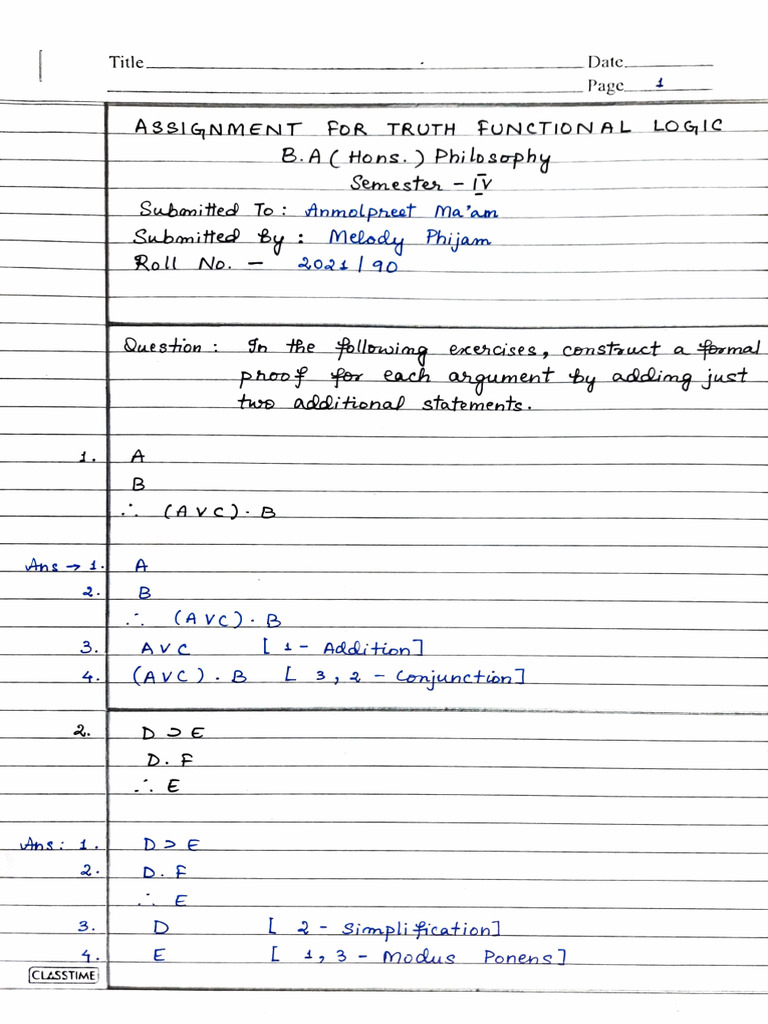 Title
Date
Page 1
ASSIGNMENT FOR TRUTH FUNCTIONAL LOGIC
B.A (Hons.) Philosophy
Semester - IV
Submitted To : Anmolpreet Ma'am
Submitted By : Melody Phijam
Roll No. - 2021/90
Question : In the following exercises, construct a formal
proof for each argument by adding just
two additional statements.
1. A
B
∴ (A V C) · B
Ans → 1. A
2. B
∴ (A V C) · B
3. A V C [ 1 - Addition]
4. (A V C) · B [ 3, 2 - Conjunction]
2. D ⊃ E
D. F
∴ E
Ans : 1. D ⊃ E
2. D. F
∴ E
3. D [ 2 - Simplification]
4. E [ 1, 3 - Modus Ponens]
CLASSTIME